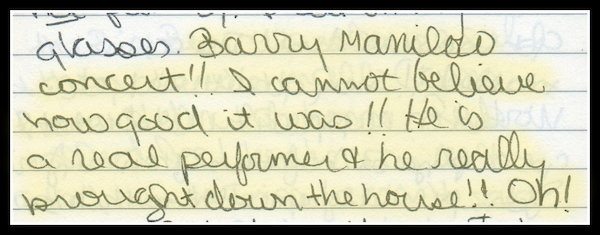 glasses. Barry Manilow
concert!! I cannot believe
how good it was!! He is
a real performer & he really
brought down the house!! Oh!